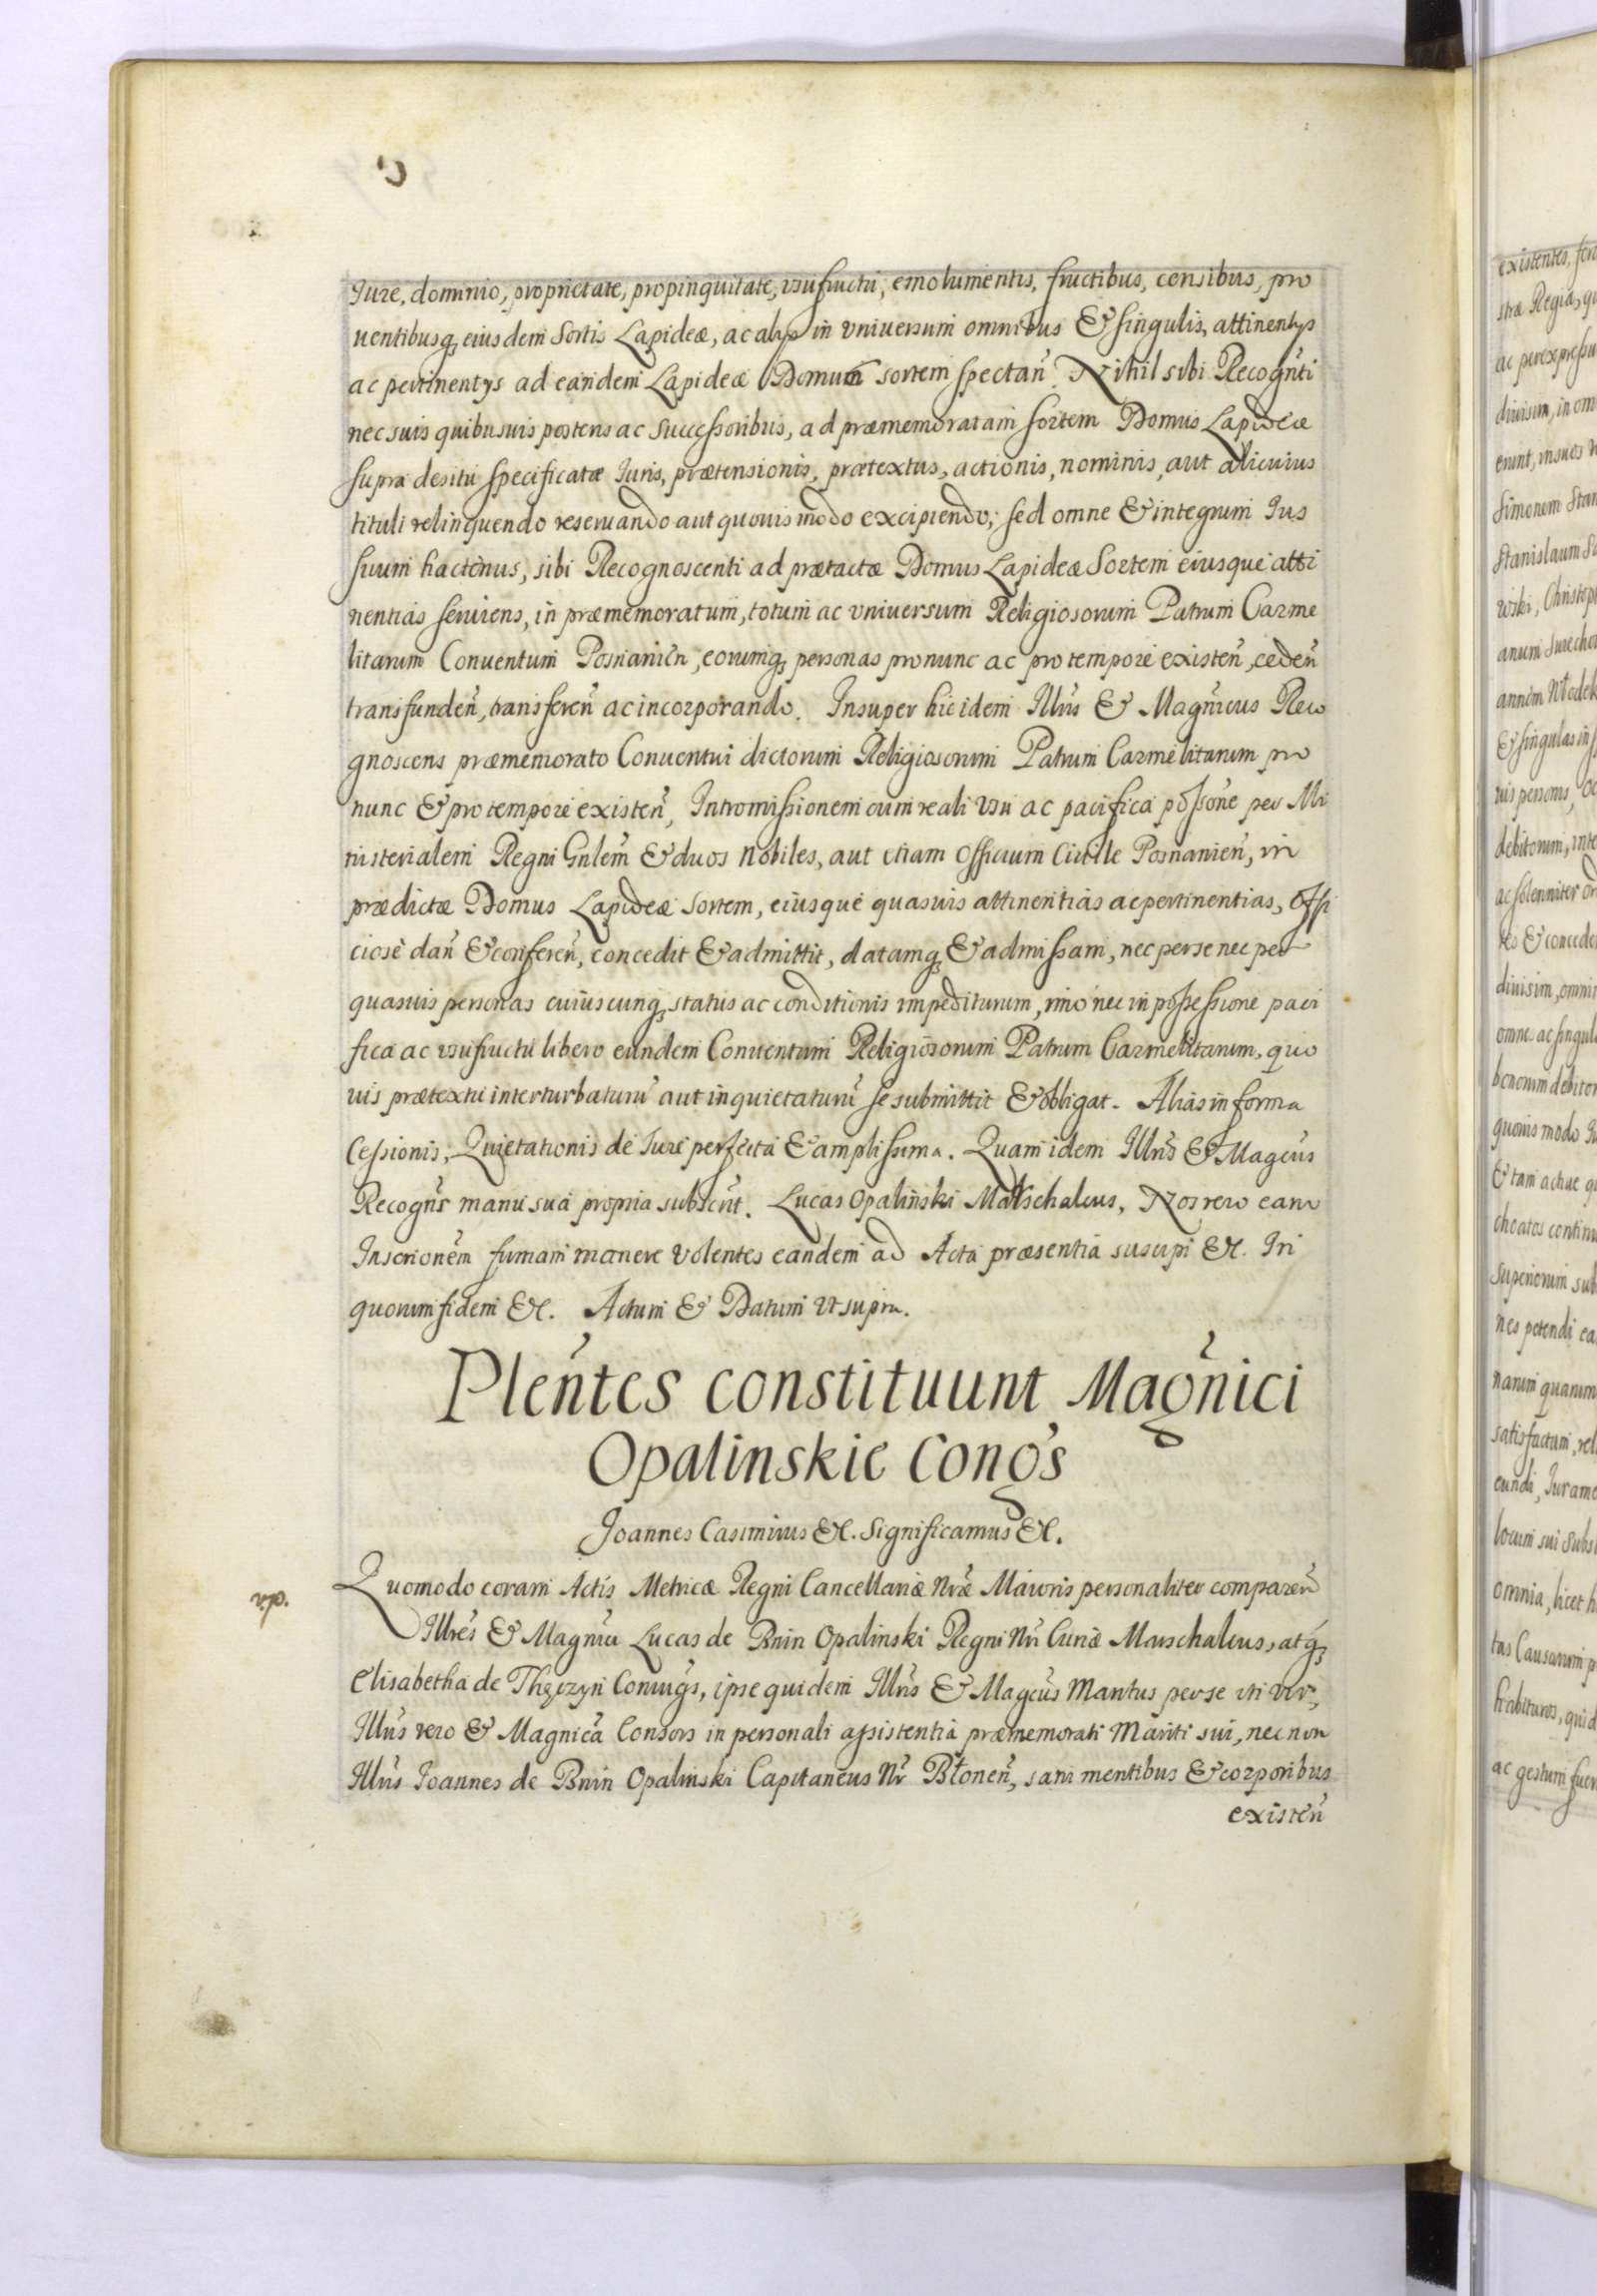 Jure, dominio, proprietate, propinquitate, usufructu, emolumentis, fructibus, censibus, pro
uentibusq, eiusdem Sortis Lapideæ, ac alys in vniuersum omnibus & singulis, attinentys
ac pertinentys ad eandem Lapideæ Domus sortem spectan. Nihil sibi Recognti
nec suis quibusuis posteris ac Successoribus, ad præmemoratam sortem Domus Lapideæ
supra de situ specificatæ Juris, prætensionis, prætextus, actionis, nominis, aut alicuius
tituli relinquendo reseruando aut quouis modo excipiendo; sed omne & integrum Jus
suum hactenus, sibi Recognoscenti ad prætactæ Domus Lapideæ Sortem eiusque atti
nentias seruiens, in præmemoratum, totum ac vniuersum Religiosorum Patrum Carme
litarum Conuentum Posnanien, eorumq, personas pro nunc ac pro tempore existen, ceden
transfunden, transferen ac incorporando. Insuper hic idem Illris & Magnicus Reco
gnoscens præmemorato Conuentui dictorum Religiosorum Patrum Carmelitarum pro
nunc & pro tempore existen, Intromissionem cum reali vsu ac pacifica possone per Mi
nisterialem Regni Gnlem & duos Nobiles, aut etiam Officium Ciuile Posnanien, in
prædictæ Domus Lapideæ Sortem, eiusque quasuis attinentias ac pertinentias, Offi
ciose dan & conferen, concedit & admittit, datamq, & admissam, nec per se nec per
quasuis personas cuiuscunq, status ac conditionis impediturum, imo nec in possessione paci
fica ac vsufructu libero eundem Conuentum Religiosorum Patrum Carmelitarum, quo
uis prætextu interturbaturu aut inquietaturu se submittit & obligat. Alias in forma
Cessionis, Quietationis de Jure perfecta & amplissima. Quam idem Illris & Magcus
Recogns manu sua propria subscrit. Lucas Opalinski Marschalcus, Nos vero eam
Inscrionem firmam manere volentes eandem ad Acta præsentia suscipi &c. In
quorum fidem &c. Actum & Datum Vt supra.
Plentes constituunt Magnici
Opalinskie Congs
Joannes Casimirus &c. Significamus &c.
Quomodo coram Actis Metricæ Regni Cancellariæ Nræ Maioris personaliter comparen
Illres & Magnici Lucas de Bnin Opalinski Regni Nri Curiæ Marschalcus, atq,
Elisabetha de Thęczyn Coniugs, ipse quidem Illris & Magcus Maritus per se uti vir,
Illris vero & Magnica Consors in personali assistentia præmemorati Mariti sui, nec non
Illris Joannes de Bnin Opalinski Capitaneus Nr Błonen, sani mentibus & corporibus
existen